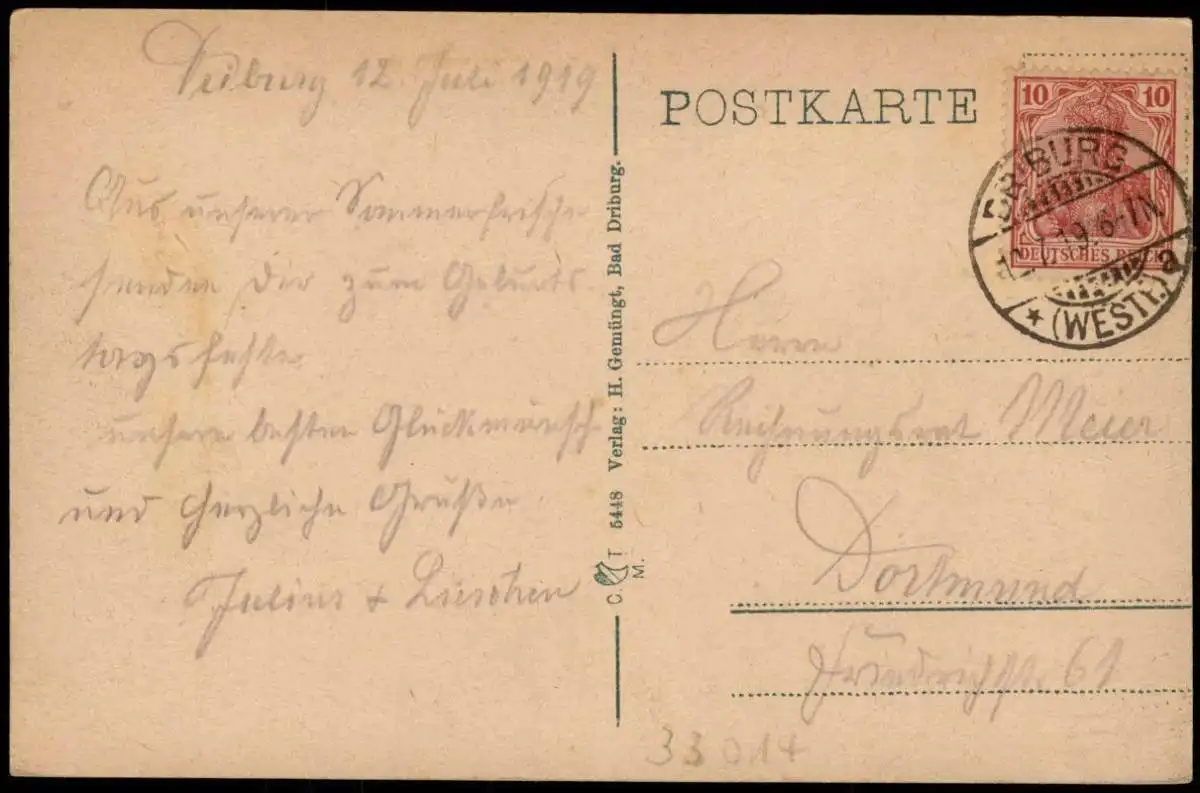 Driburg 12. Juli 1919
Aus unserer Sommerfrische
senden Dir zum Geburts
tagsfeste
unsere besten Glückwünsche
und herzliche Grüße
Julius + Lieschen
C. T. M. 5448 Verlag: H. Gemüngt, Bad Driburg.
POSTKARTE
10 10
DEUTSCHES REICH
DRIBURG
7.19. 6-7N.
* (WESTF.) a
Herrn
Rechnungsrat Meier
Dortmund
Friedrichstr. 61
33014